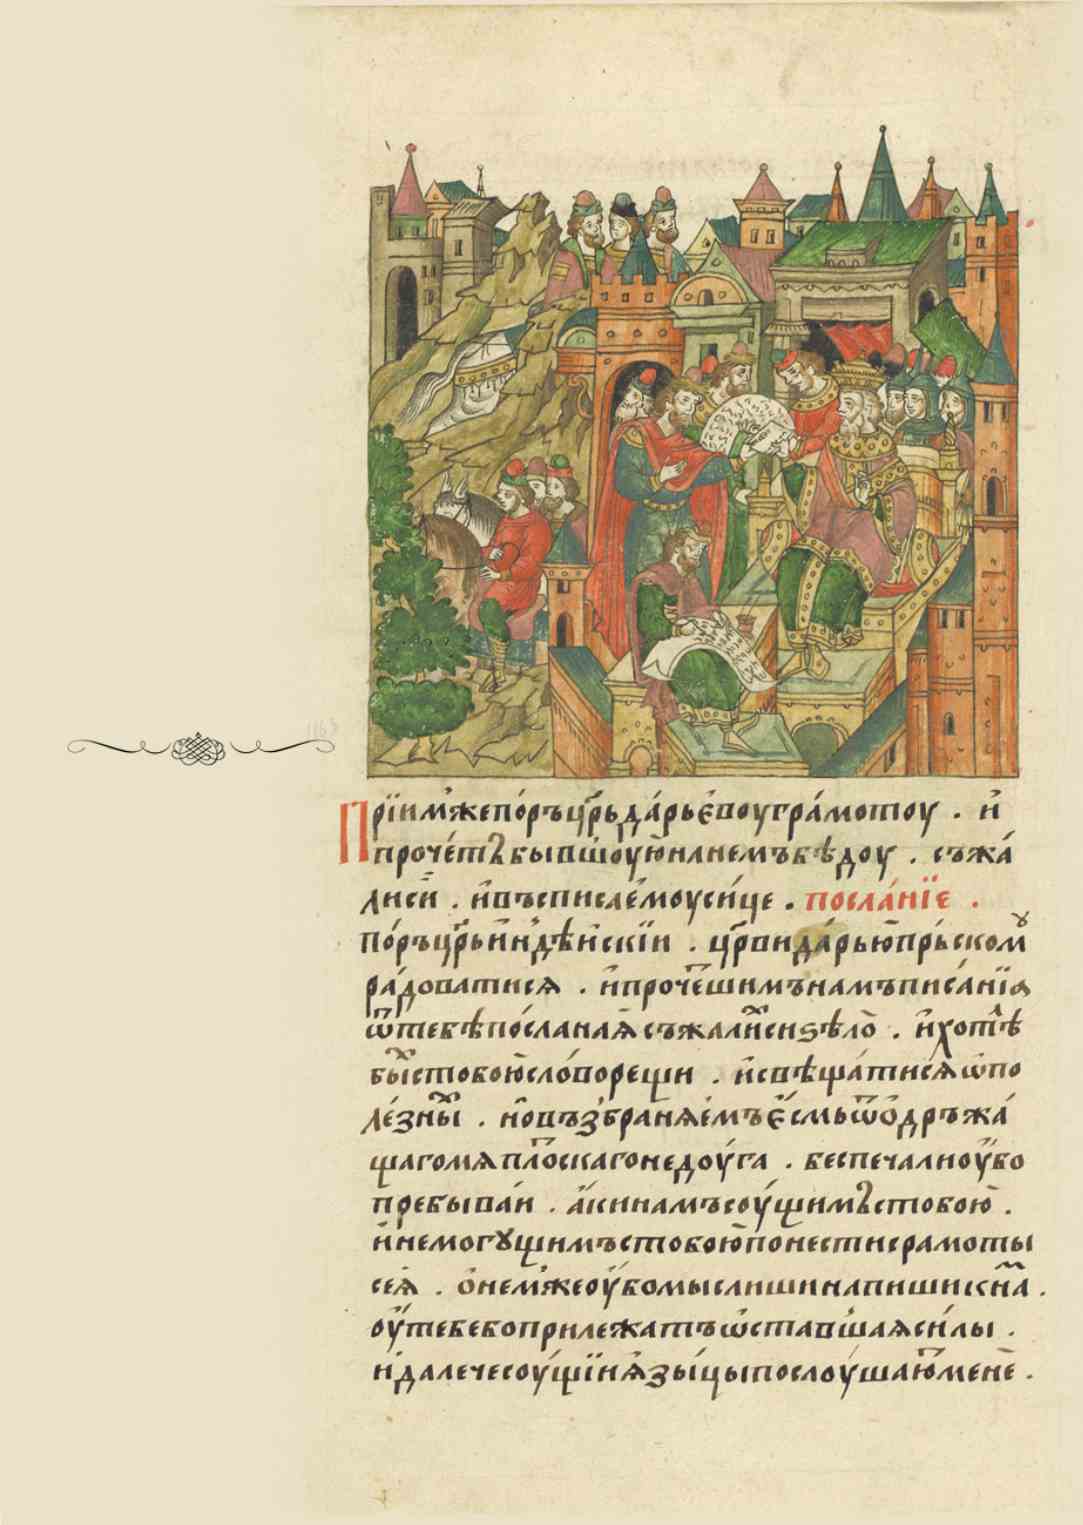 Прїимⷤже поръ црⷭ҇ь да́рьѐвоу гра́мотоу . и҆
проче́тъ бывшоую҆ на немъ бѣдоу . съжа́
лиси . и҆ въсписа е҆моу си́це . посла́нїе .
По́ръ црⷭ҇ь и҆ндѣи҆скїи . црⷭ҇ви да́рью пръ́скомꙋ
ра́доватися . и҆ прочеⷮшимъ намъ писа́нїѧ
ѿ тебѣ по́сланаѧ съжалиⷯси ѕѣло̀ . и҆ хотѣⷯ
быⷯ с тобою҆ сло́во рещи . и҆ свѣща́тисѧ ѡ҆ по
ле́зныⷯ . но҆ възбраняе҆мъ е҆смь ѿ ѻ҆дръжа́
щаго мѧ плоⷮскаго недоу́га . беспечално оу҆бо
пребыва́и . а҆ки намъ соу́щимъ с тобою̀ .
и҆ не могꙋщимъ с тобою҆ понести срамоты
сеѧ̀ . ѻ҆ немⷤже оу҆бо мыслиши напиши к наⷨ .
оу҆ тебе бо прилежатъ ѡ҆ставшаѧ си́лы .
и҆ далече соу́щїи ѧ҆зы́цы послоу́шаюⷮ менѐ .